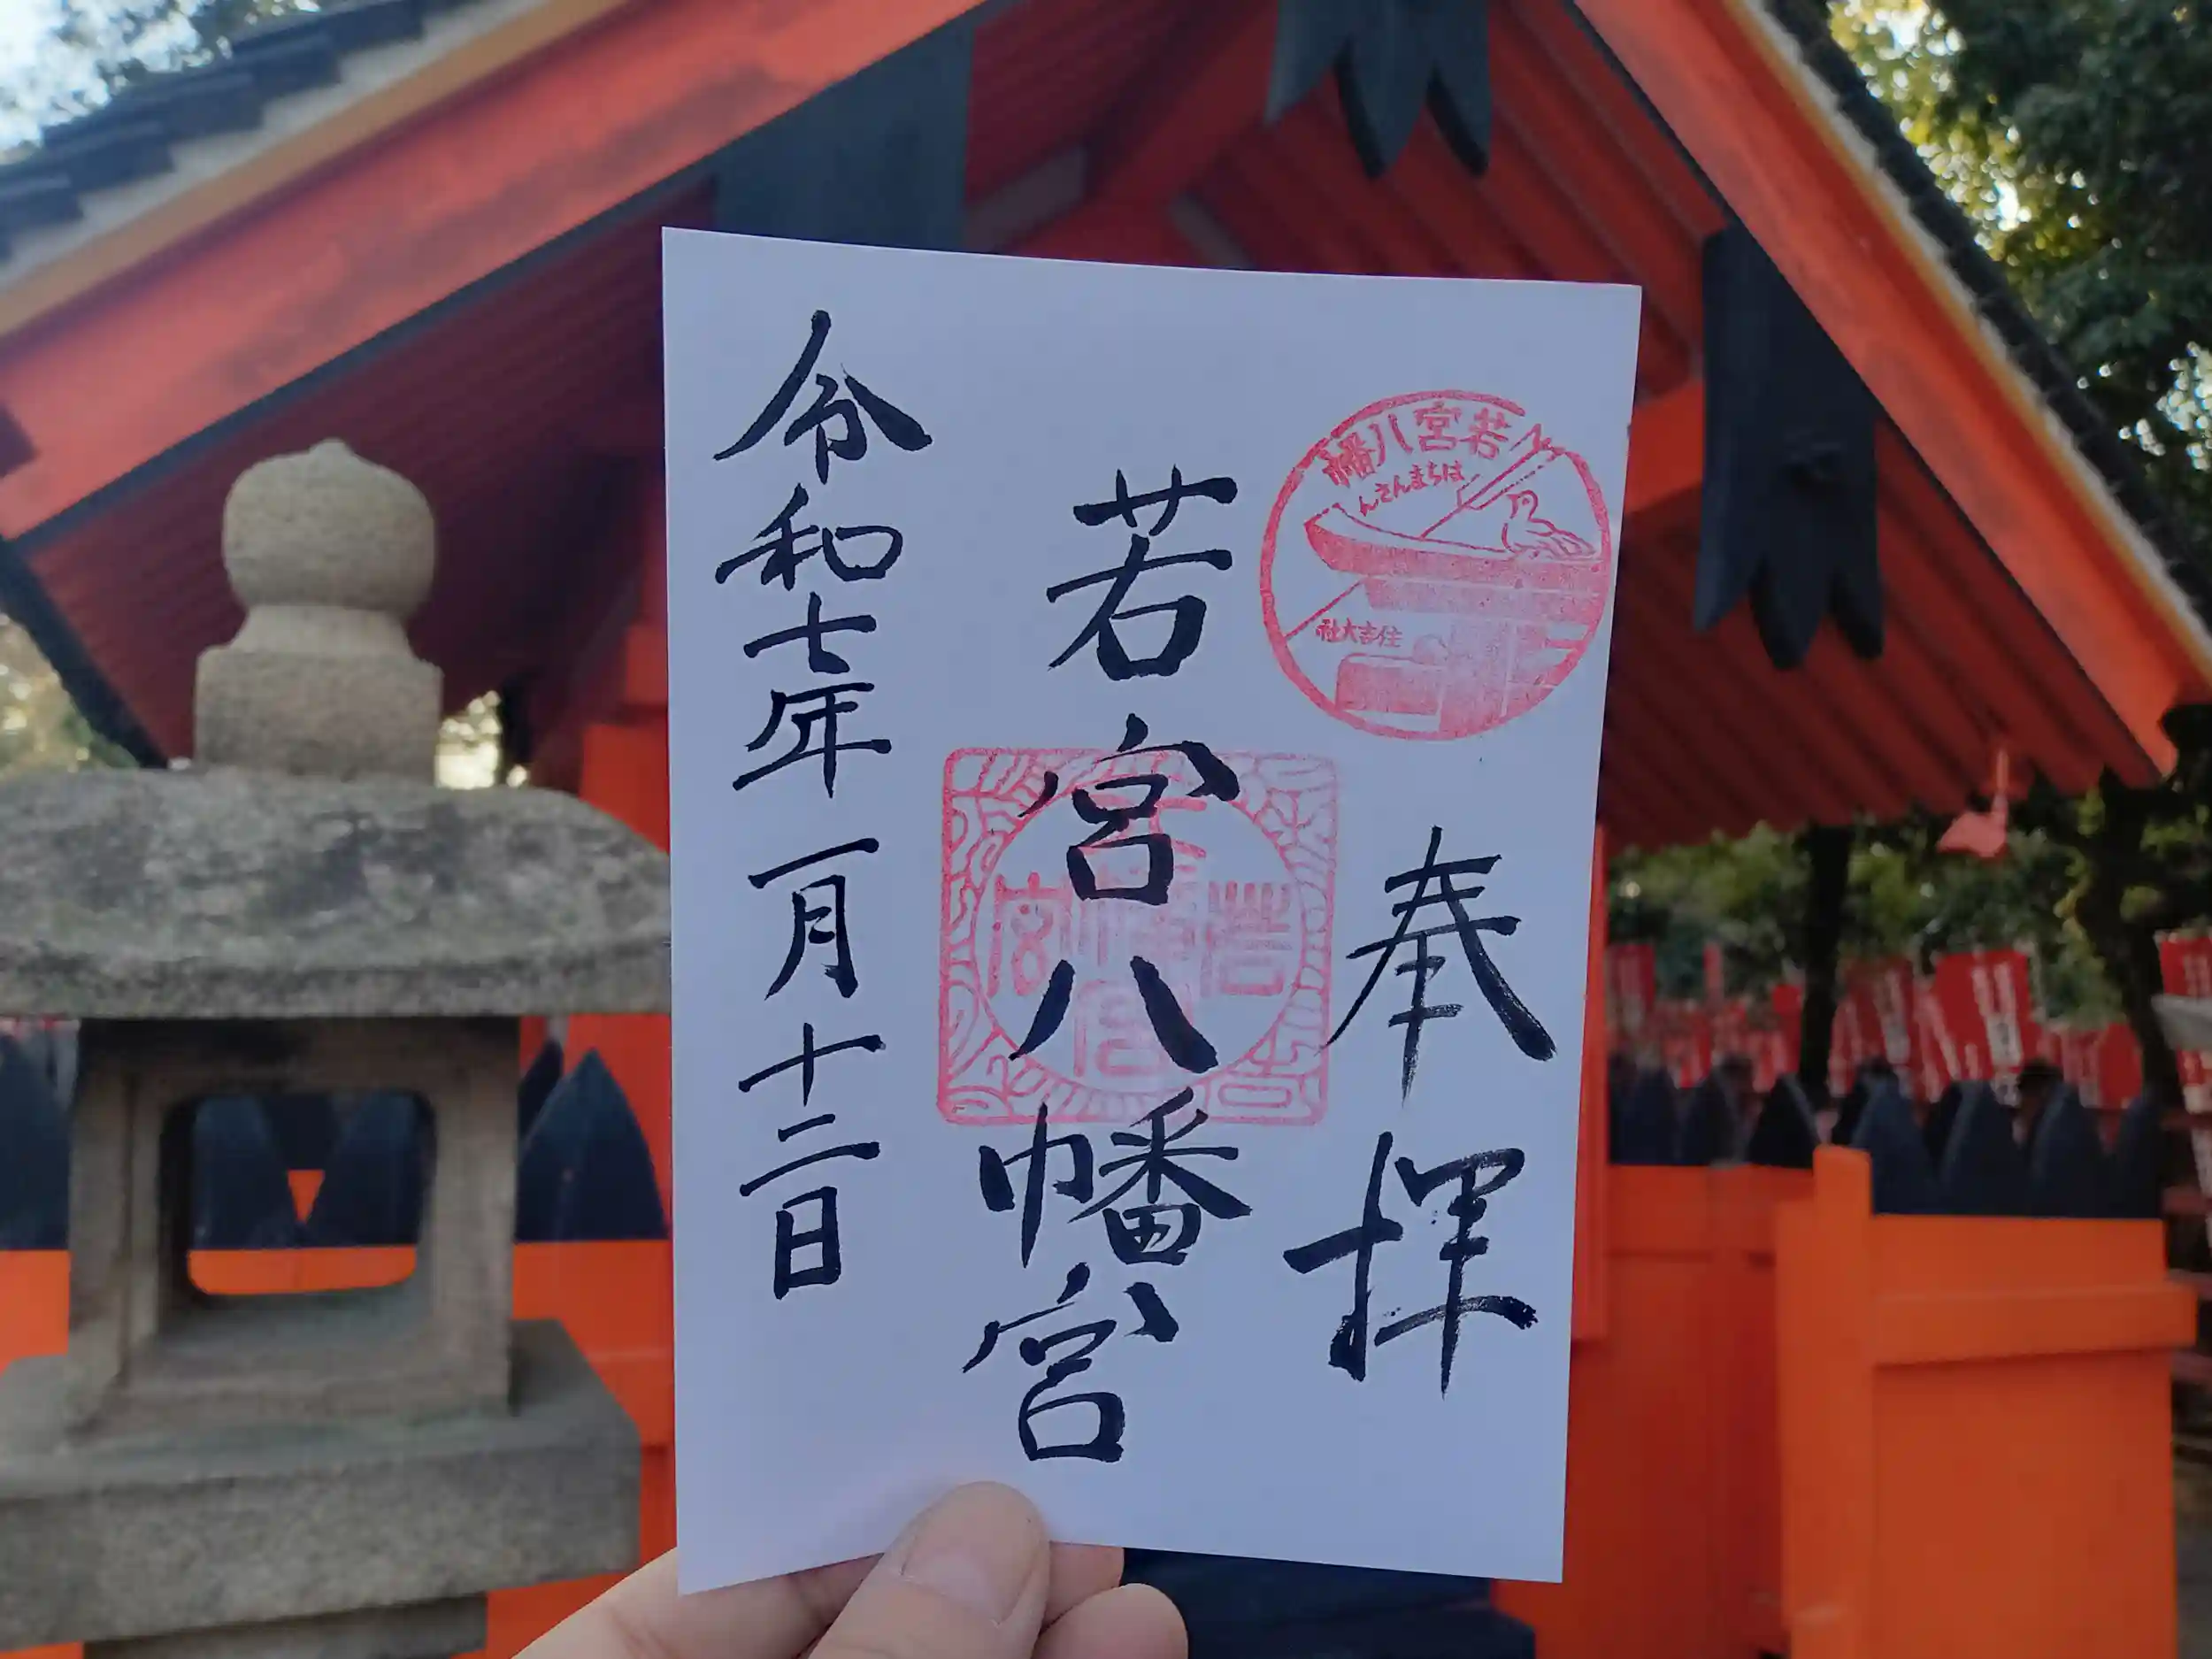 奉拝
若宮八幡宮
令和七年一月十二日
若宮八幡
はちまんさん
住吉大社